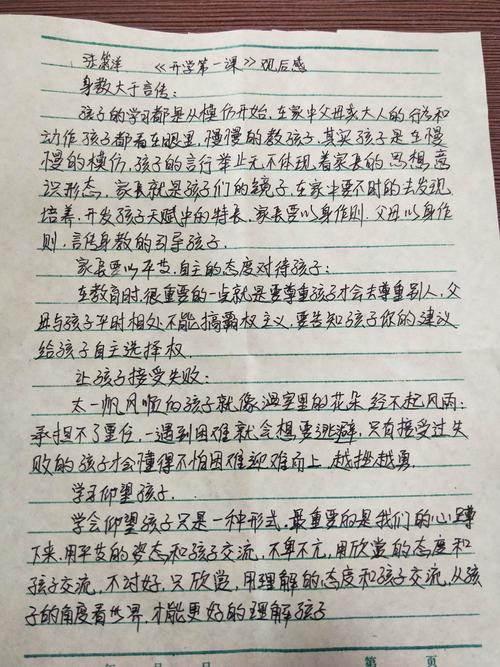 张箫洋 《开学第一课》观后感
身教大于言传：
孩子的学习都是从模仿开始，在家中父母亲大人的行为和
动作孩子都看在眼里，慢慢的教孩子。其实孩子是在慢
慢的模仿，孩子的言行举止无不体现着家长的思想意
识形态，家长就是孩子们的镜子，在家中要不时的去发现，
培养、开发孩子天赋中的特长，家长要以身作则，父母以身作
则，言传身教的引导孩子。
家长要以平等、自主的态度对待孩子：
在教育时，很重要的一点就是要尊重孩子才会去尊重别人，父
母与孩子平时相处不能搞霸权主义，要告知孩子你的建议
给孩子自主选择权。
让孩子接受失败：
太一帆风顺的孩子就像温室里的花朵 经不起风雨；
承担不了重任，一遇到困难就会想要逃避，只有接受过失
败的孩子才会懂得不怕困难迎难而上，越挫越勇。
学习仰望孩子.
学会仰望孩子只是一种形式，最重要的是我们的心蹲
下来，用平等的姿态和孩子交流，不卑不亢，用欣赏的态度和
孩子交流，不讨好，只欣赏，用理解的态度和孩子交流，从孩
子的角度看世界，才能更好的理解孩子
年 月 日 第 页